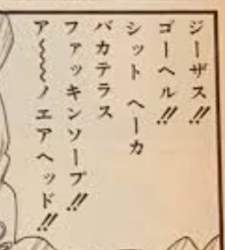 ジーザス!!
ゴーヘル!!
シット ヘーカ
バカテラス
ファッキンソープ!!
ア〜〜ノエアヘッド!!